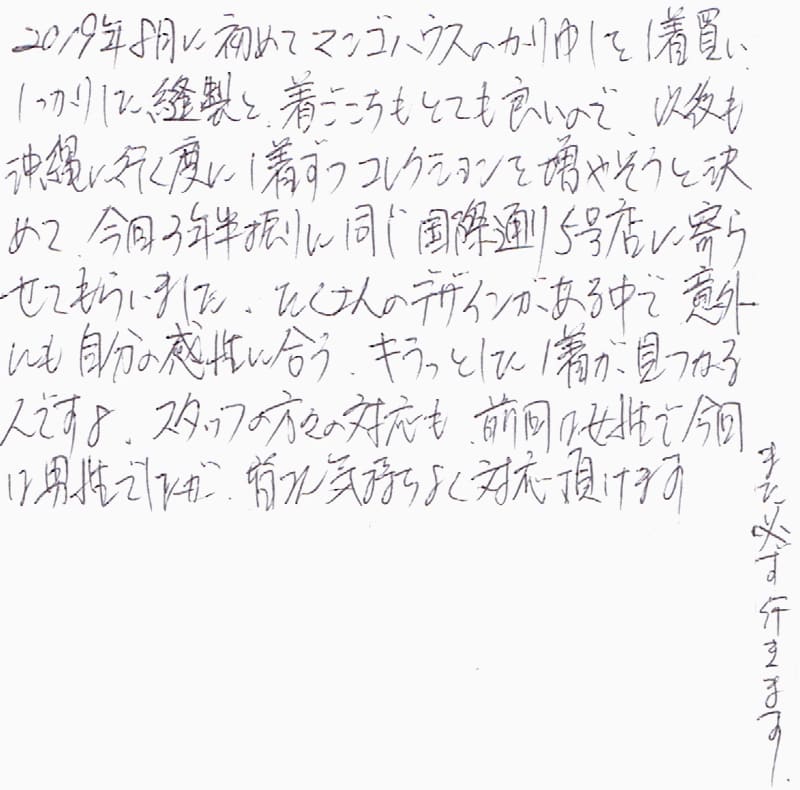 2019年8月に初めてマンゴハウスのかりゆしを1着買い、
しっかりした縫製と、着ごこちもとても良いので、以後も
沖縄に行く度に1着ずつコレクションを増やそうと決
めて、今回3年半振りに同じ国際通り5号店に寄ら
せてもらいました。たくさんのデザインがある中で意外
にも自分の感性に合う、キラっとした1着が見つかる
んですよ。スタッフの方々の対応も、前回は女性で今回
は男性でしたが、皆さん気持ちよく対応頂けます
また必ず行きます。